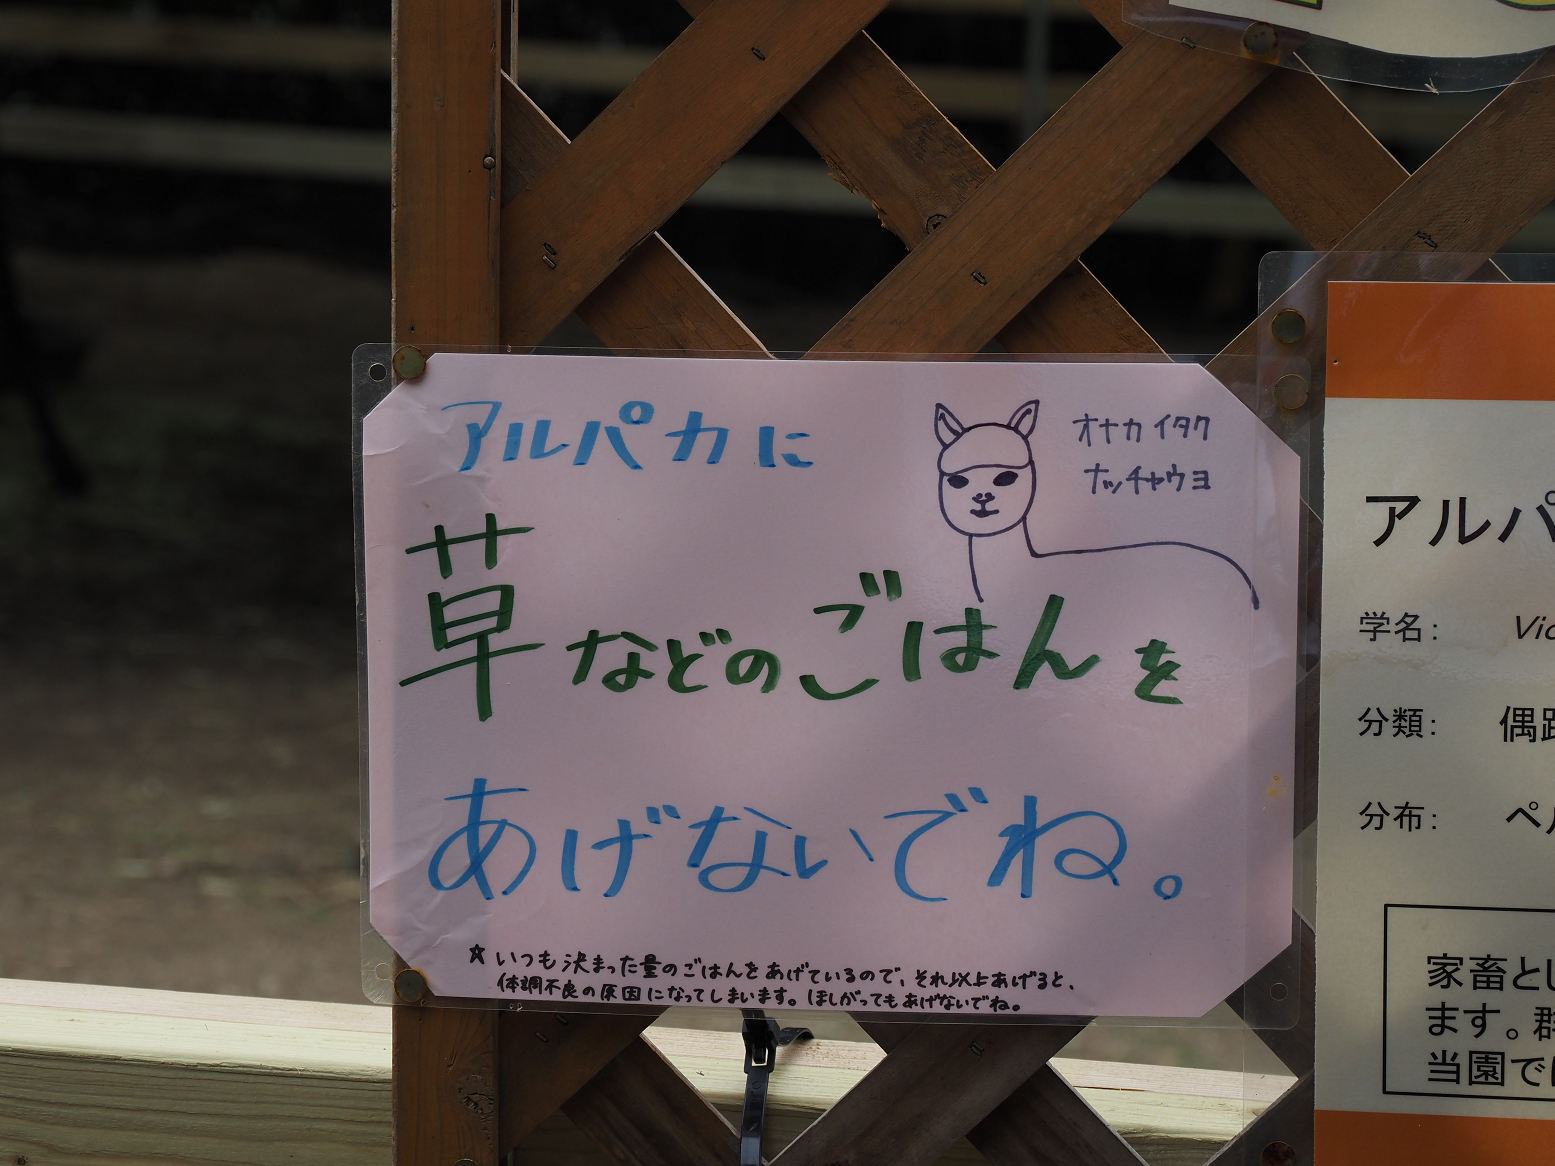 アルパカに
オナカイタク
ナッチャウヨ
草などのごはんを
あげないでね。
☆いつも決まった量のごはんをあげているので、それ以上あげると、
体調不良の原因になってしまいます。ほしがってもあげないでね。
アルパ
学名: Vic
分類: 偶蹄
分布: ペル
家畜とし
ます。群
当園では